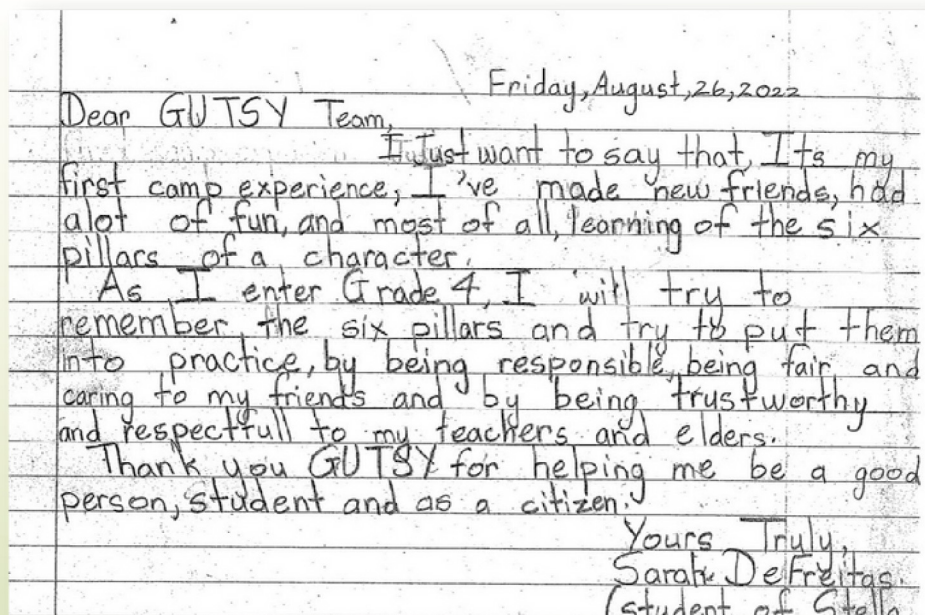 Friday, August, 26, 2022
Dear GUTSY Team,
I Just want to say that, Its my
first camp experience, I've made new friends, had
alot of fun, and most of all, learning of the six
pillars of a character.
As I enter Grade 4, I will try to
remember the six pillars and try to put them
into practice, by being responsible, being fair and
caring to my friends and by being trustworthy
and respectfull to my teachers and elders.
Thank you GUTSY for helping me be a good
person, student and as a citizen.
Yours Truly,
Sarah DeFreitas.
(student of Stella